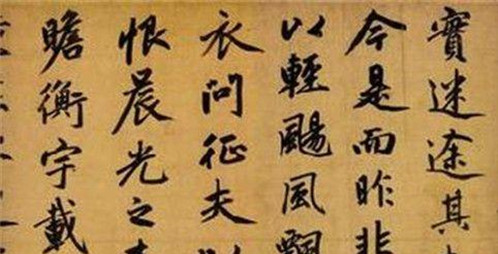 實迷途其
今是而昨非
以輕颺風飄
衣問征夫以
恨晨光之
瞻衡宇載